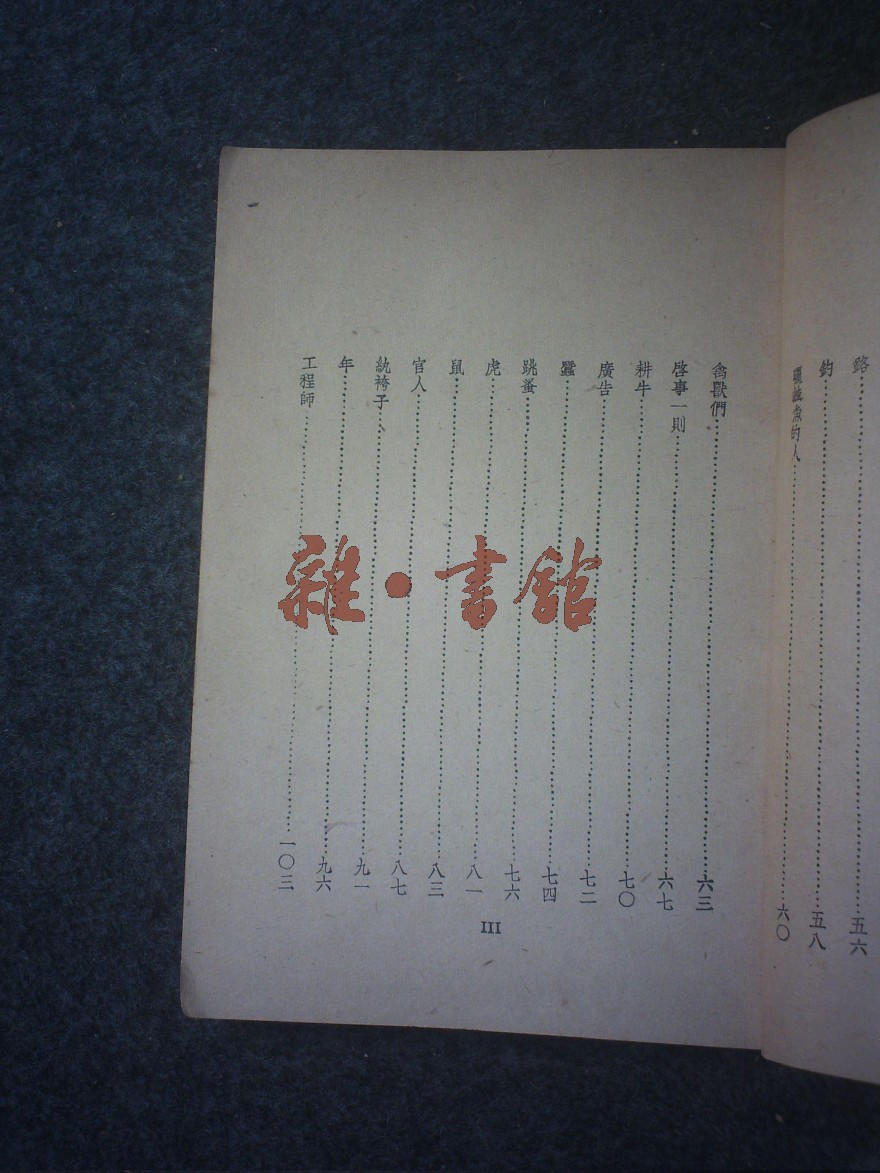 路……五六
釣……五八
魚的人……六〇
禽獸們……六三
啓事一則……六七
耕牛……七〇
廣告……七二
蠶……七四
跳蚤……七六
虎……八一
鼠……八三
官人……八七
紈袴子……九一
年……九六
工程師……一〇三
III
雜·書館